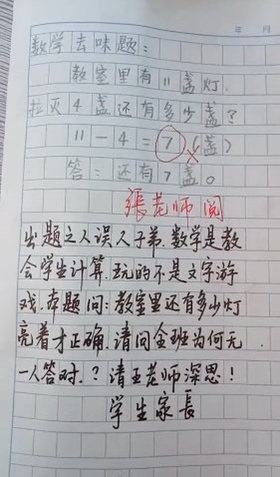 年 月
数学去味题:
教室里有11盏灯.
拉灭4盏还有多少盏?
11-4=7(盏)
答:还有7盏。
張老师阅
出题之人误人子弟.数学是教
会学生计算.玩的不是文字游
戏.本题问:教室里还有多少灯
亮着才正确.请问全班为何无
一人答对.?请王老师深思!
学生家長